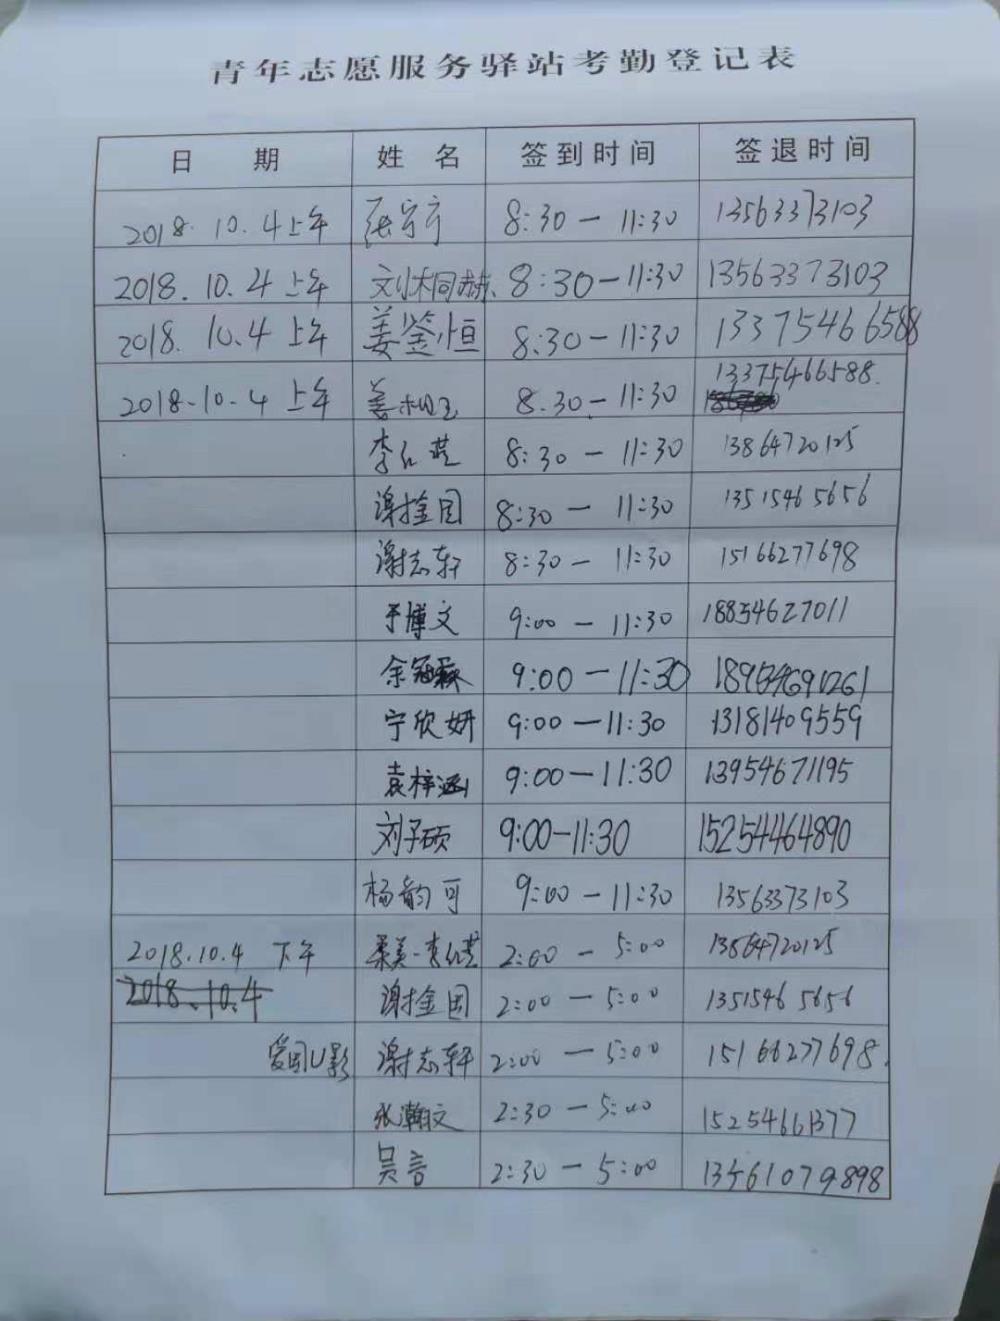 青年志愿服务驿站考勤登记表
日 期 姓 名 签到时间 签退时间
2018. 10. 4上午 8:30 — 11:30 13563373103
2018. 10. 4 上午 刘桐赫 8:30 — 11:30 13563373103
2018. 10.4 上午 姜鉴恒 8:30 — 11:30 13375466588
2018.10.4 上午 姜 8.30 — 11:30 13375466588.
李红莲 8:30 — 11:30 13864720125
谢金国 8:30 — 11:30 13515465656
谢志轩 8:30 — 11:30 15166277698
于博文 9:00 — 11:30 18854627011
余冠霖 9:00 — 11:30 18954691261
宁欣妍 9:00 — 11:30 13181409559
袁梓涵 9:00 — 11:30 13954671195
刘子硕 9:00-11:30 15254464890
杨韵可 9:00 — 11:30 13563373103
2018.10.4 下午 李红莲 2:00 — 5:00 13864720125
2018.10.4 谢金国 2:00 — 5:00 13515465656
爱国U影 谢志轩 2:00 — 5:00 15166277698.
张瀚文 2:30 — 5:00 15254661377
吴言 2:30 — 5:00 13461079898